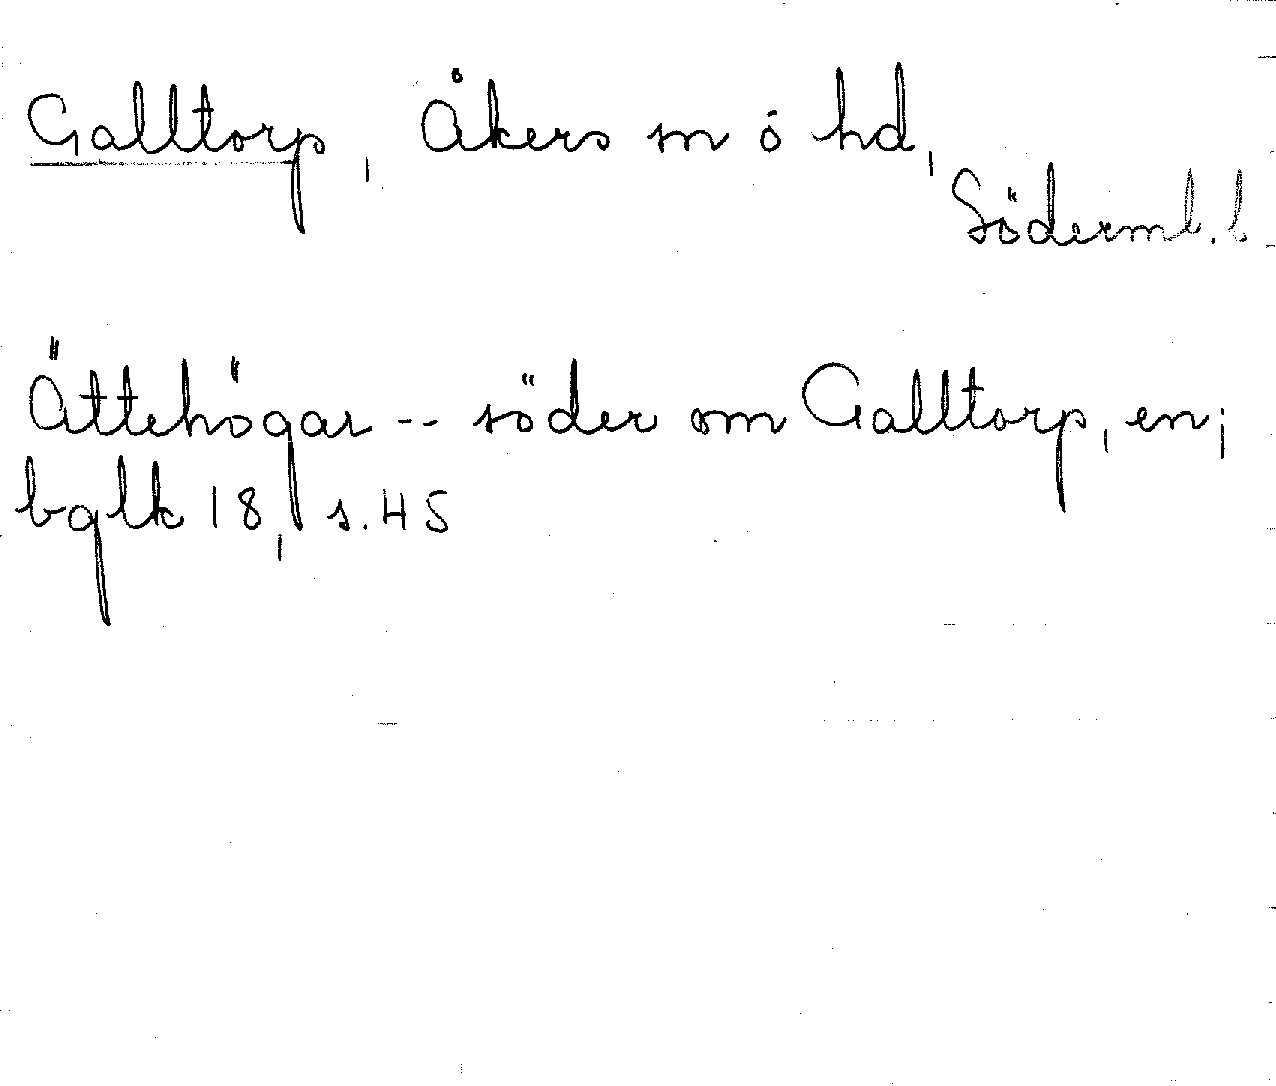 Galltorp, Åkers sn o hd,
Söderml. l
Ättehögar -- söder om Galltorp, en;
bglk 18, s. 45